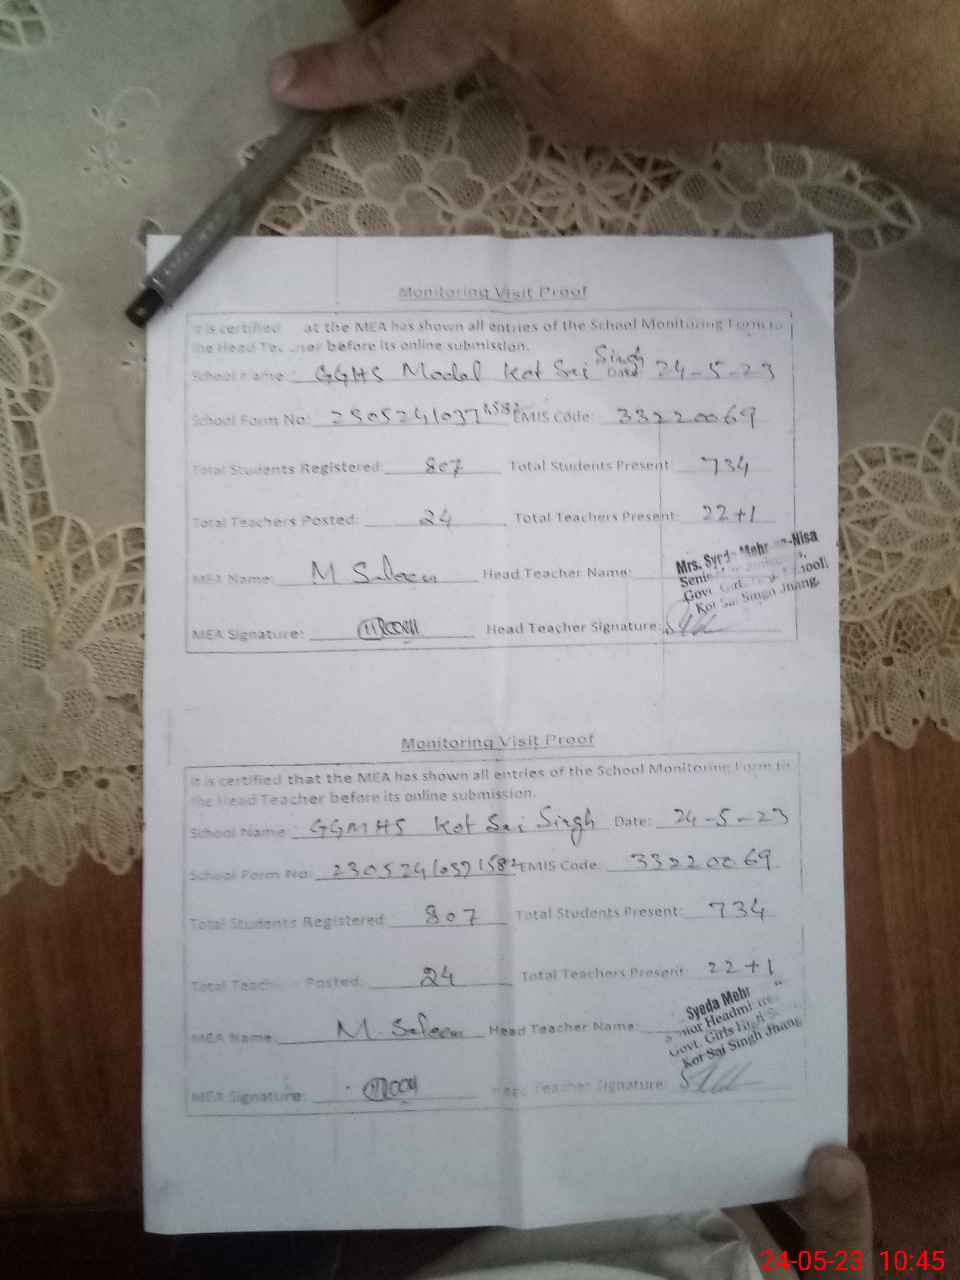 Monitoring Visit Proof
It is certified at the MEA has shown all entries of the School Monitoring Form to
the Head Teacher before its online submission.
School Name: GGHS Model Kot Sai Singh Date 24-5-23
School Form No: 23052410371582 EMIS Code: 33220069
Total Students Registered: 807 Total Students Present: 734
Total Teachers Posted: 24 Total Teachers Present: 22+1
MEA Name: M Saleem Head Teacher Name:
Mrs. Syeda Mehr -Nisa
Govt. Girls High School
Kot Sai Singh Jhang.
MEA Signature: Head Teacher Signature:
Monitoring Visit Proof
It is certified that the MEA has shown all entries of the School Monitoring Form to
the Head Teacher before its online submission.
School Name: GGMHS Kot Sai Singh Date: 24-5-23
School Form No: 23052410371582 EMIS Code: 33220069
Total Students Registered: 807 Total Students Present: 734
Total Teach Posted: 24 Total Teachers Present: 22+1
MEA Name: M. Saleem Head Teacher Name:
Syeda Mehr
Senior Headmistress
Govt. Girls High
Kot Sai Singh Jhang
MEA Signature: Head Teacher Signature:
24-05-23 10:45